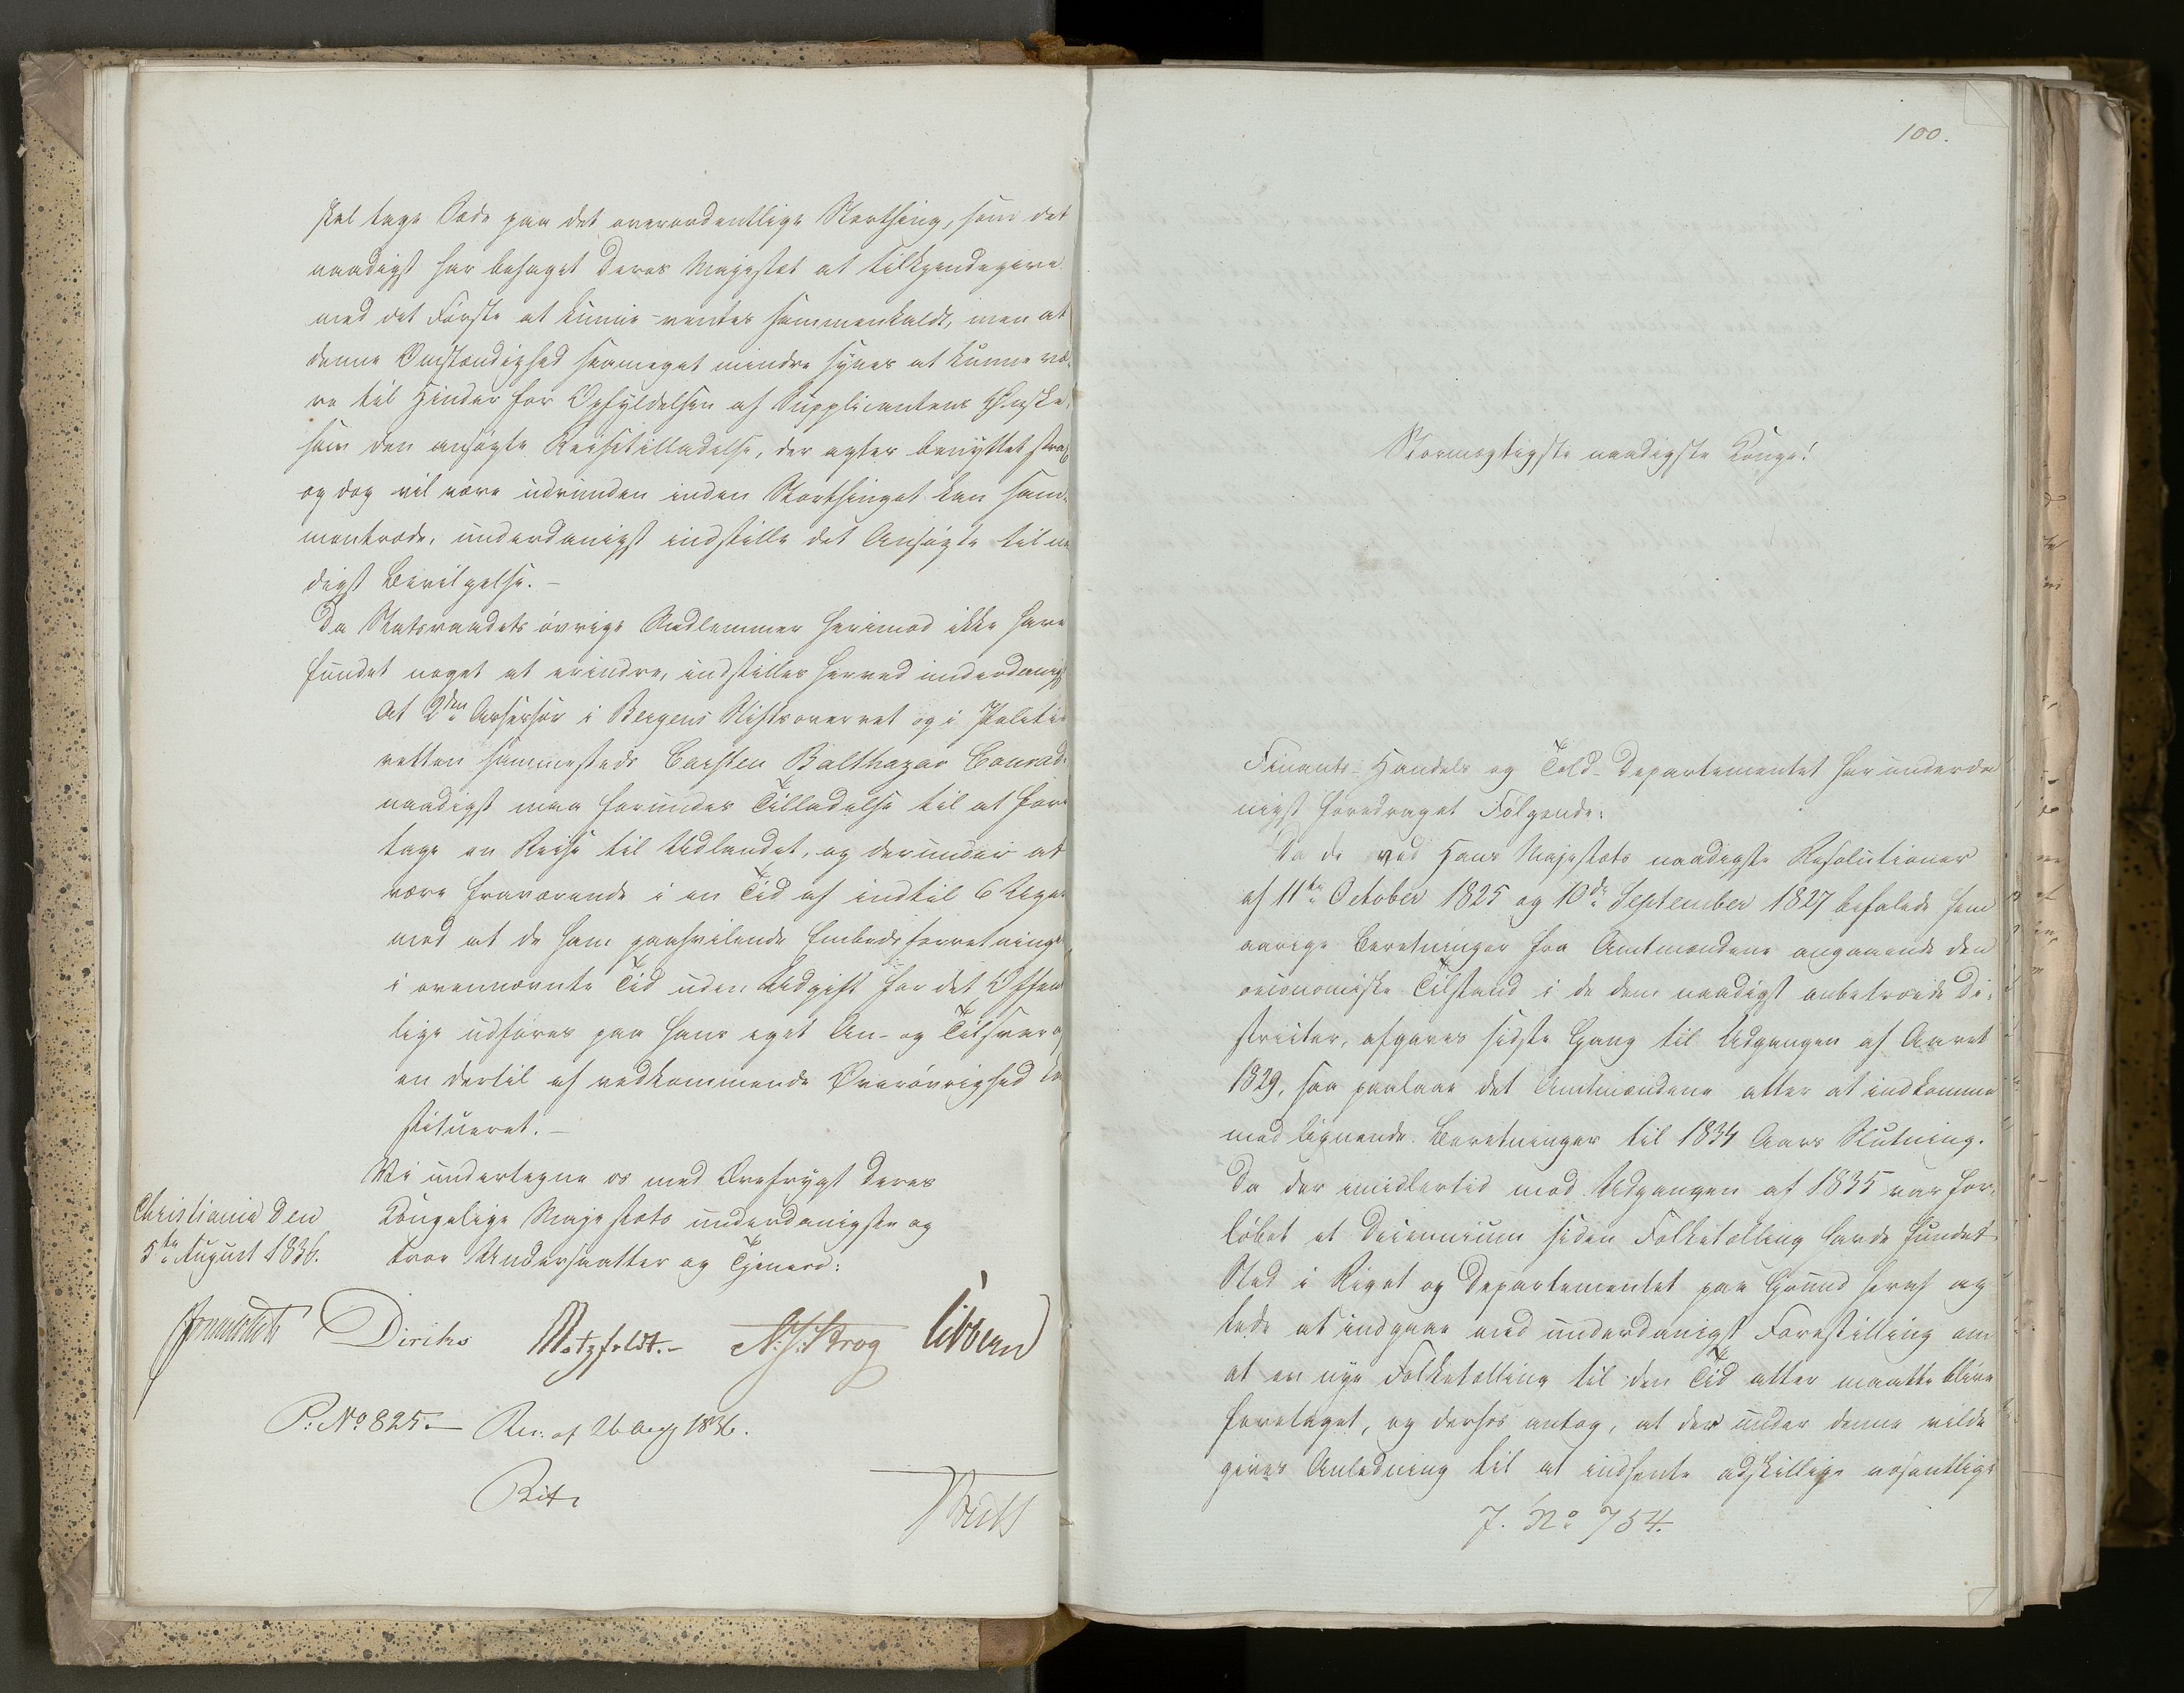 skal tage Sæde paa det overordentlige Storthing, som det
naadigst har behaget Deres Majestæt at tilkjendegive
med det Første at kunne ventes sammenkaldt, men at
denne Omstændighed saameget mindre synes at kunne væ-
re til Hinder for Opfyldelsen af Supplicantens Ønske,
som den ansøgte Reisetilladelse, der agtes benyttet strax
og dog vil være udrunden inden Storthinget kan sam-
mentræde, underdanigst indstille det Ansøgte til naa
digst Bevilgelse. –
Da Statsraadets øvrige Medlemmer herimod ikke have
fundet noget at erindre, indstilles herved underdanigst
At 2den Assessor i Bergens Stiftsoverret og i Politie
retten sammesteds Carsten Balthazar Conradi
naadigst maa forundes Tilladelse til at fore
tage en Reise til Udlandet, og derunder at
være fraværende i en Tid af indtil 6 Uger
mod at de ham paahvilende Embedsforretninger
i ovennævnte Tid uden Udgift for det Offent
lige udføres paa hans eget An- og Tilsvar af
en dertil af vedkommende Øverøvrighed con
stitueret. –
Vi undertegne os med Ærefrygt Deres
Kongelige Majestæts underdanigste og
troe Undersaatter og Tjenere:
Christiania den
5te August 1836.
Diriks Motzfeldt. – N. J. Krog Vibbern
P: No 825. – Res: af 26 Aug 1836.
100.
Stormægtigste naadigste Konge!
Finants- Handels og Told- Departementet har underda
nigst foredraget Følgende:
Da de ved Hans Majestæts naadigste Resolutioner
af 11te October 1825 og 10de September 1827 befalede fem
aarige Beretninger fra Amtmændene angaaende den
oeconomiske Tilstand i de dem naadigst anbetroede Di-
stricter, afgaves sidste Gang til Udgangen af Aaret
1829, saa paalaae det Amtmændene atter at indkomme
med lignende Beretninger til 1834 Aars Slutning.
Da der imidlertid mod Udgangen af 1835 var for-
løbet et Decennium siden Folketælling havde fundet
Sted i Riget og Departementet paa Grund heraf ag
tede at indgaae med underdanigst Forestilling om
at en nye Folketælling til den Tid atter maatte blive
foretaget, og derhos antog, at der under denne vilde
gives Anledning til at indhente adskillige væsentlige
J. No 754.